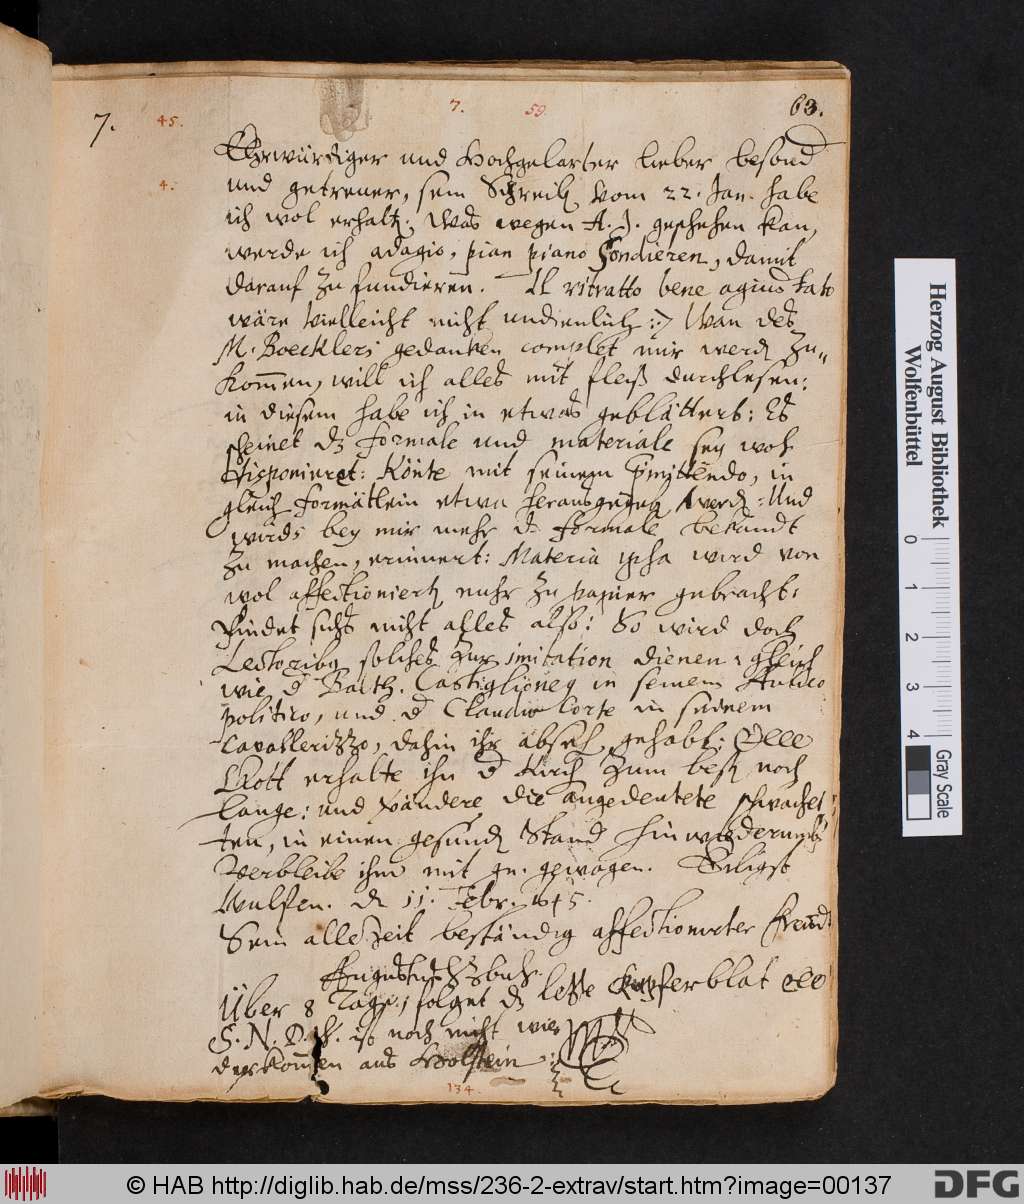 7. 45. 7. 59. 63.
Ehrwürdiger und Hochgelarter lieber besond
4. und getrewer, sein Schreib vom 22. Jan. habe
ich wol erhalt; Was wegen A. J. geschehen kan,
werde ich adagio, pian piano sondieren, damit
darauf zu fundieren. Il ritratto bene agiustato
wäre vielleicht nicht undienlich :/ Wan des
M. Boeckleri gedanken complet mir werd zu„
kommen, will ich alles mit fleiß durchlesen:
in diesem habe ich in etwas geblättert: Es
scheinet dz formale und materiale sey woh
disponieret: Könte mit seinem in
gleich formätlein etwa herausgegeb werd: Und
wirds bey mir mehr dz formale bekandt
zu machen, erinnert: Materia ipsa wird von
wol affectioniert mehr zu papier gebracht:
Findet sichs nicht alles also: So wird doch
Lectoribq solches zur imitation dienen, gleich
wie d Balth. Castiglioneq in seinem Aulico
politico, und d Claudio Corte in seinem
Cavallerizzo, dahin ihr abseh gehabt;
Gott erhalte ihn d Kirch zum best noch
lange: und verändere die angedeutete schwachei„
ten, in einen gesund Stand hinwiederumb
Verbleibe ihm mit gn. gewogen. Eiligst
Wulfen. d 11. Febr. 1645.
Sein alle Zeit beständig affectionirter Freund
Augustus HzbuL.
Über 8 Tage, folget dz letste Kupferblat
S. N. D. H. ist noch nicht wie
derkommen aus Holstein
134.
Herzog August Bibliothek
Wolfenbüttel
0 1 2 3 4
Gray Scale
© HAB http://diglib.hab.de/mss/236-2-extrav/start.htm?image=00137
DFG